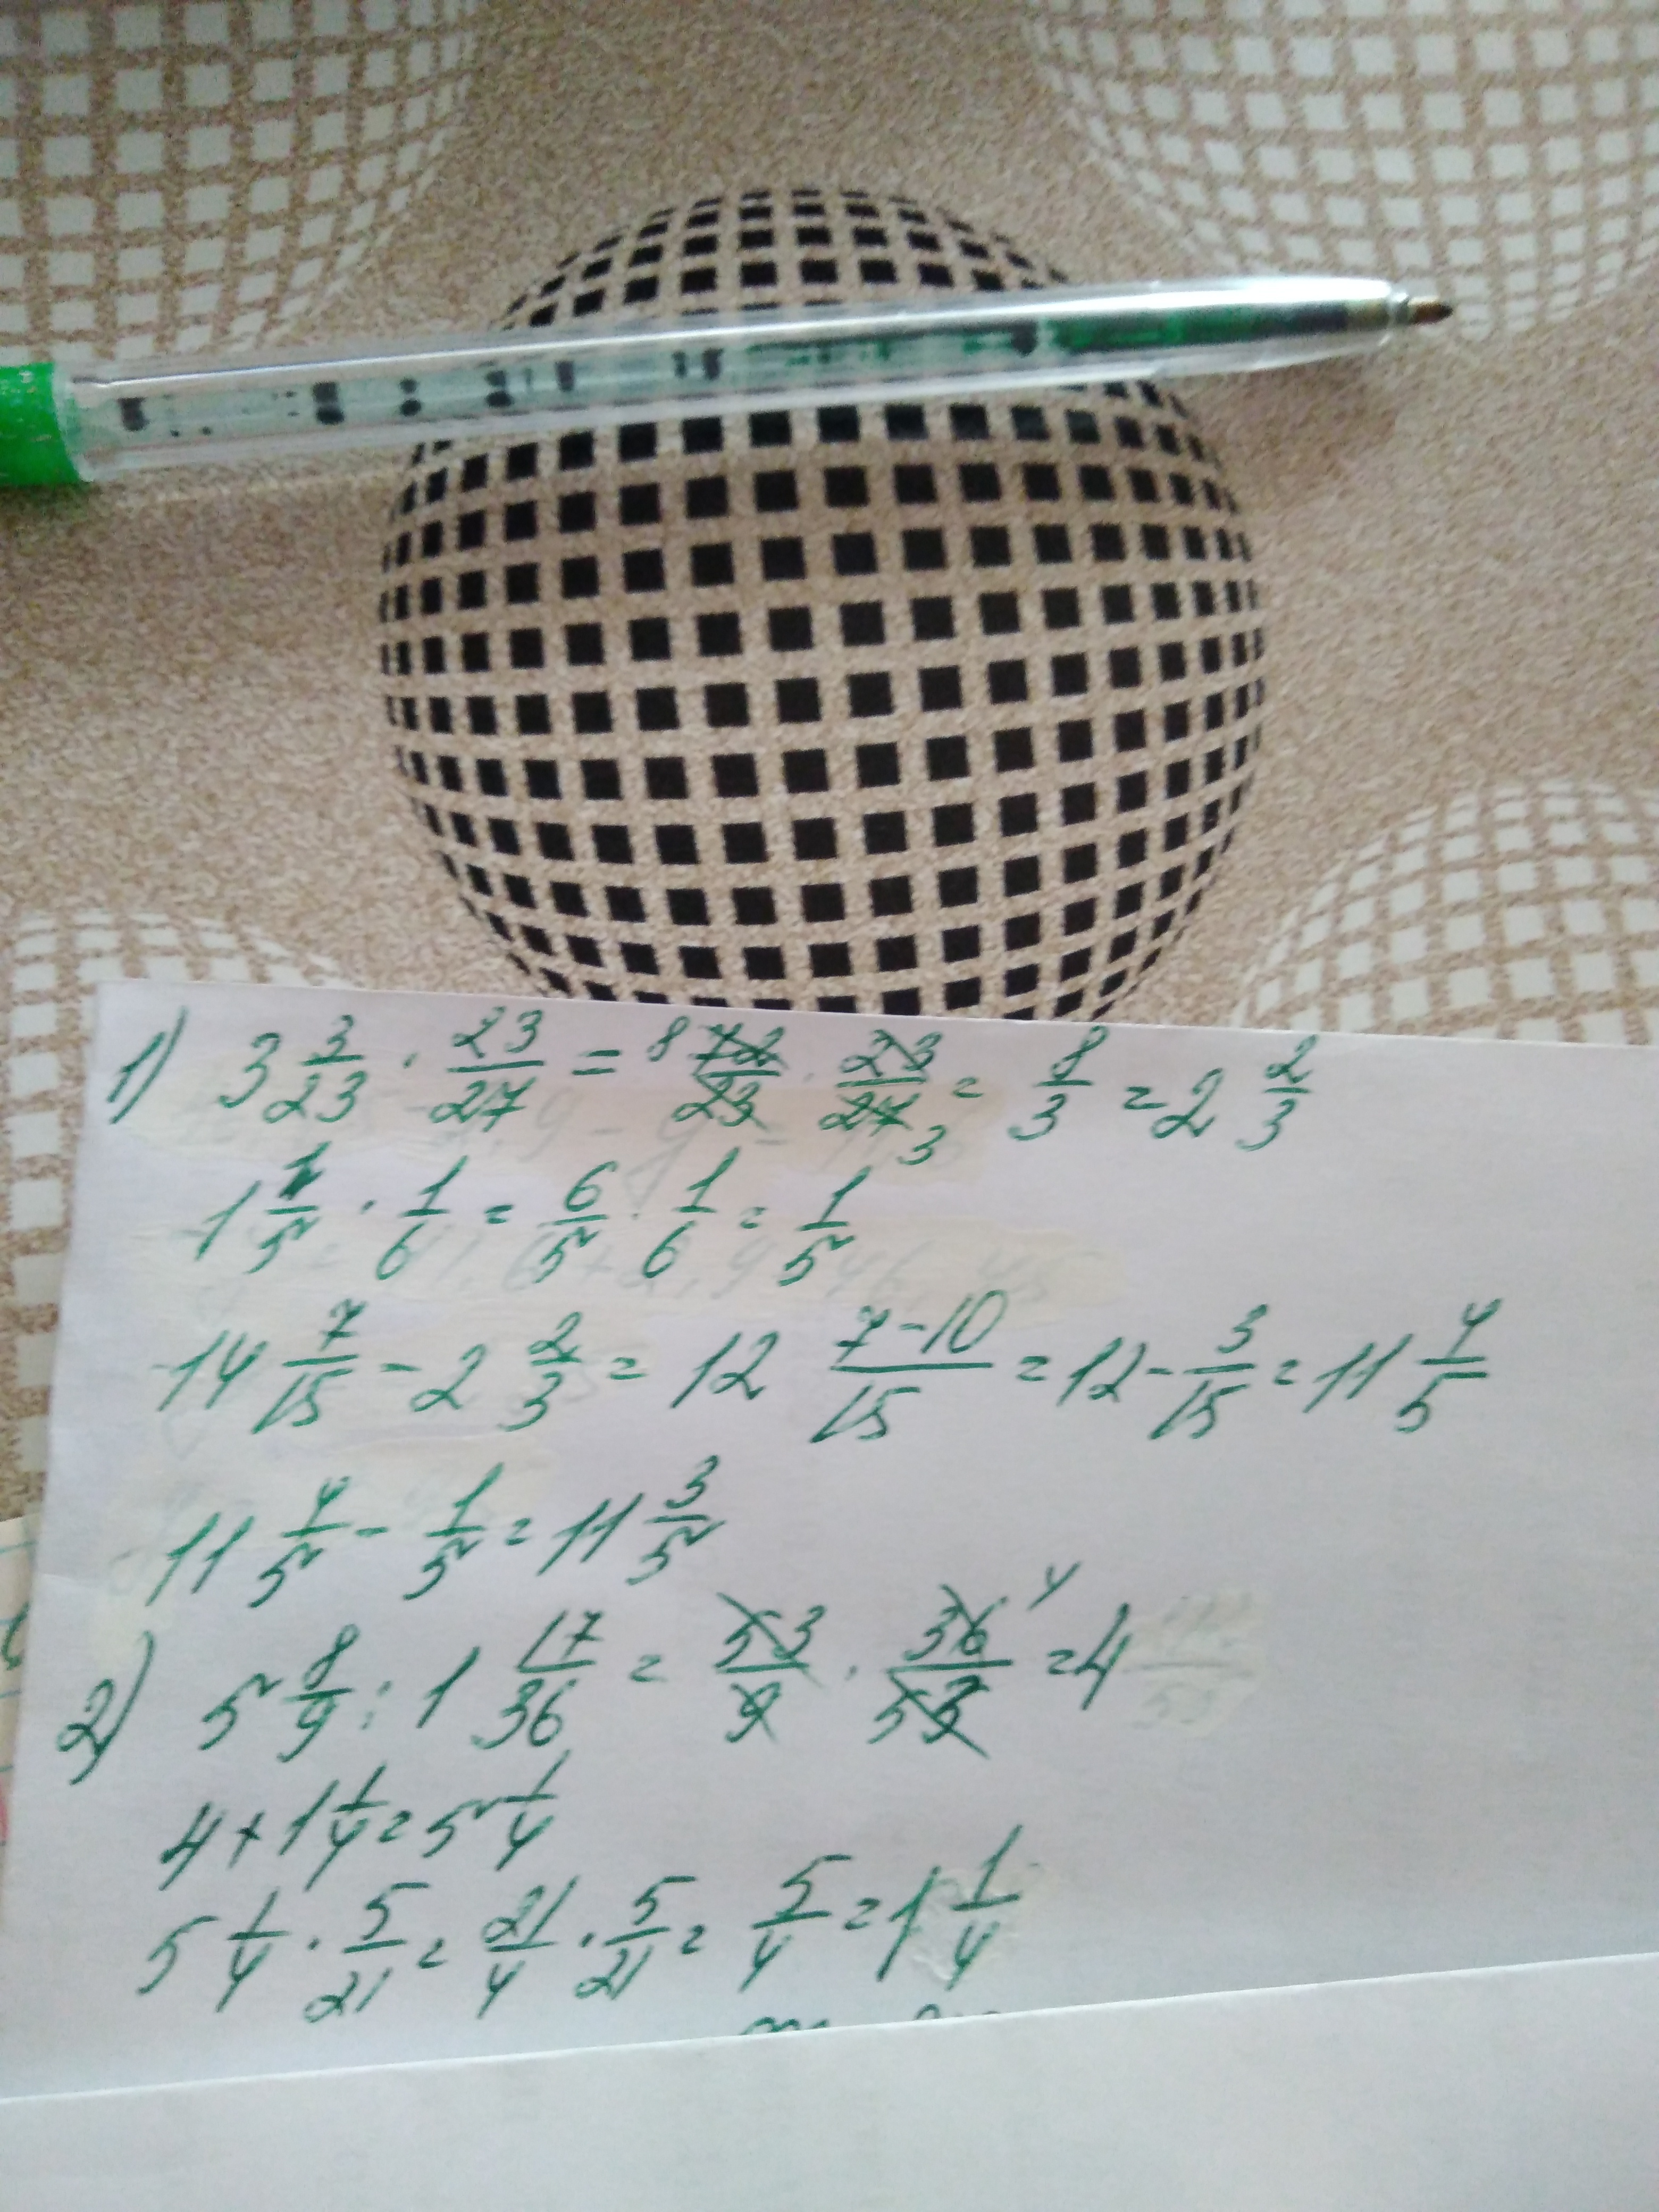 1) 3 3/23 · 23/27 = 8 72/23 · 23/27 3 = 8/3 = 2 2/3
1 1/5 · 1/6 = 6/5 · 1/6 = 1/5
14 7/15 - 2 2/3 = 12 7-10/15 = 12 - 3/15 = 11 4/5
11 4/5 - 1/5 = 11 3/5
2) 5 8/9 : 1 17/36 = 53/9 · 36/53 4 = 4
4 + 1 1/4 = 5 1/4
5 1/4 · 5/21 = 21/4 · 5/21 = 5/4 = 1 1/4